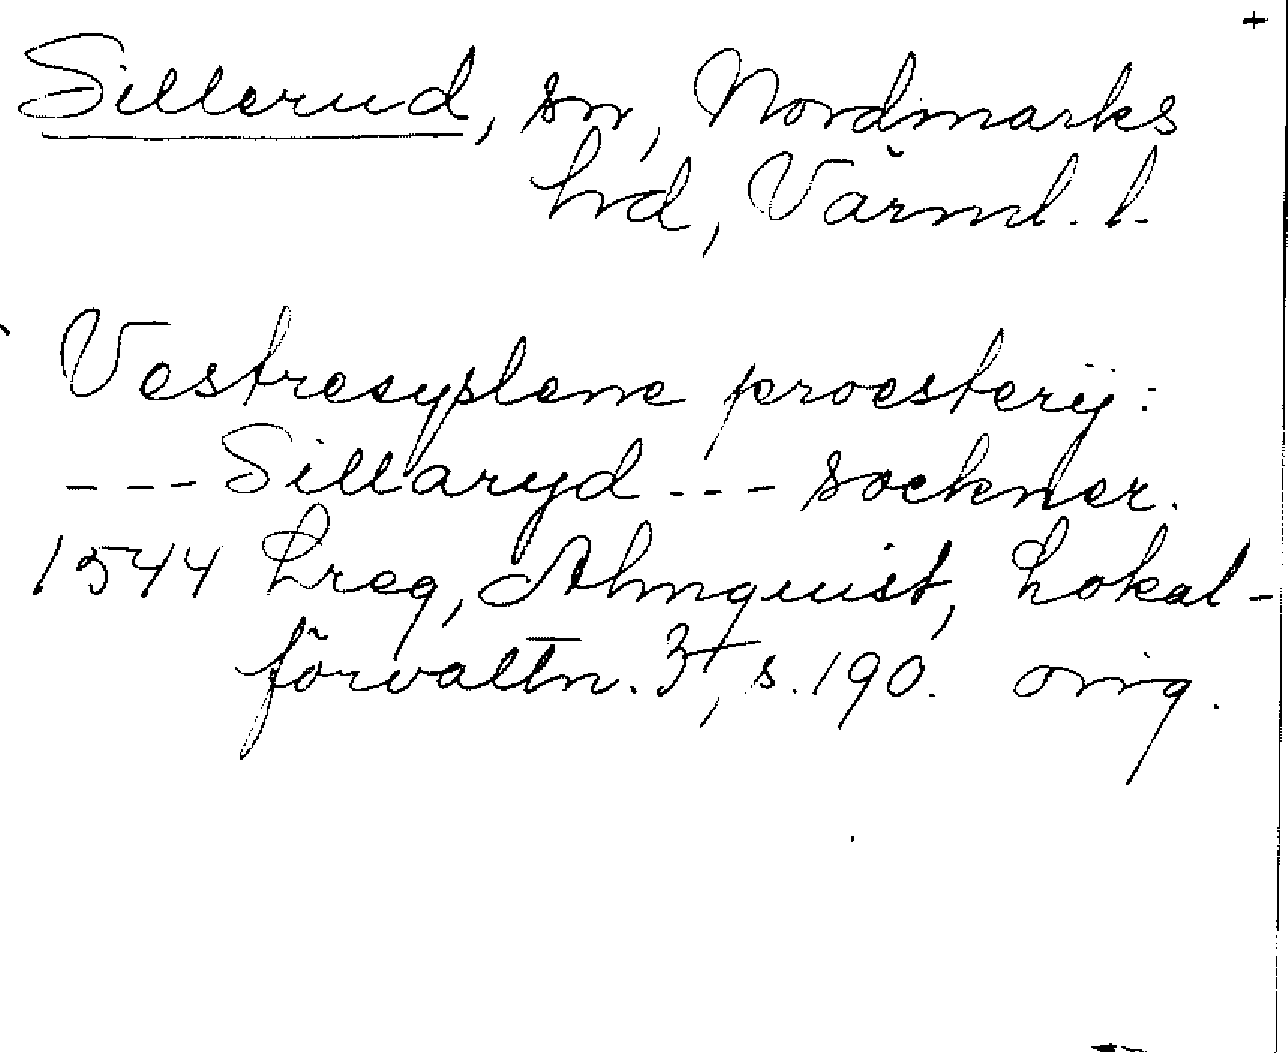 +
Sillerud, sn, Nordmarks
hd, Värml. l.
Vestresyslene proesterij:
--- Sillaryd --- sockner.
1544 Lreg, Almquist, Lokal-
förvaltn. 3, s. 190. orig.